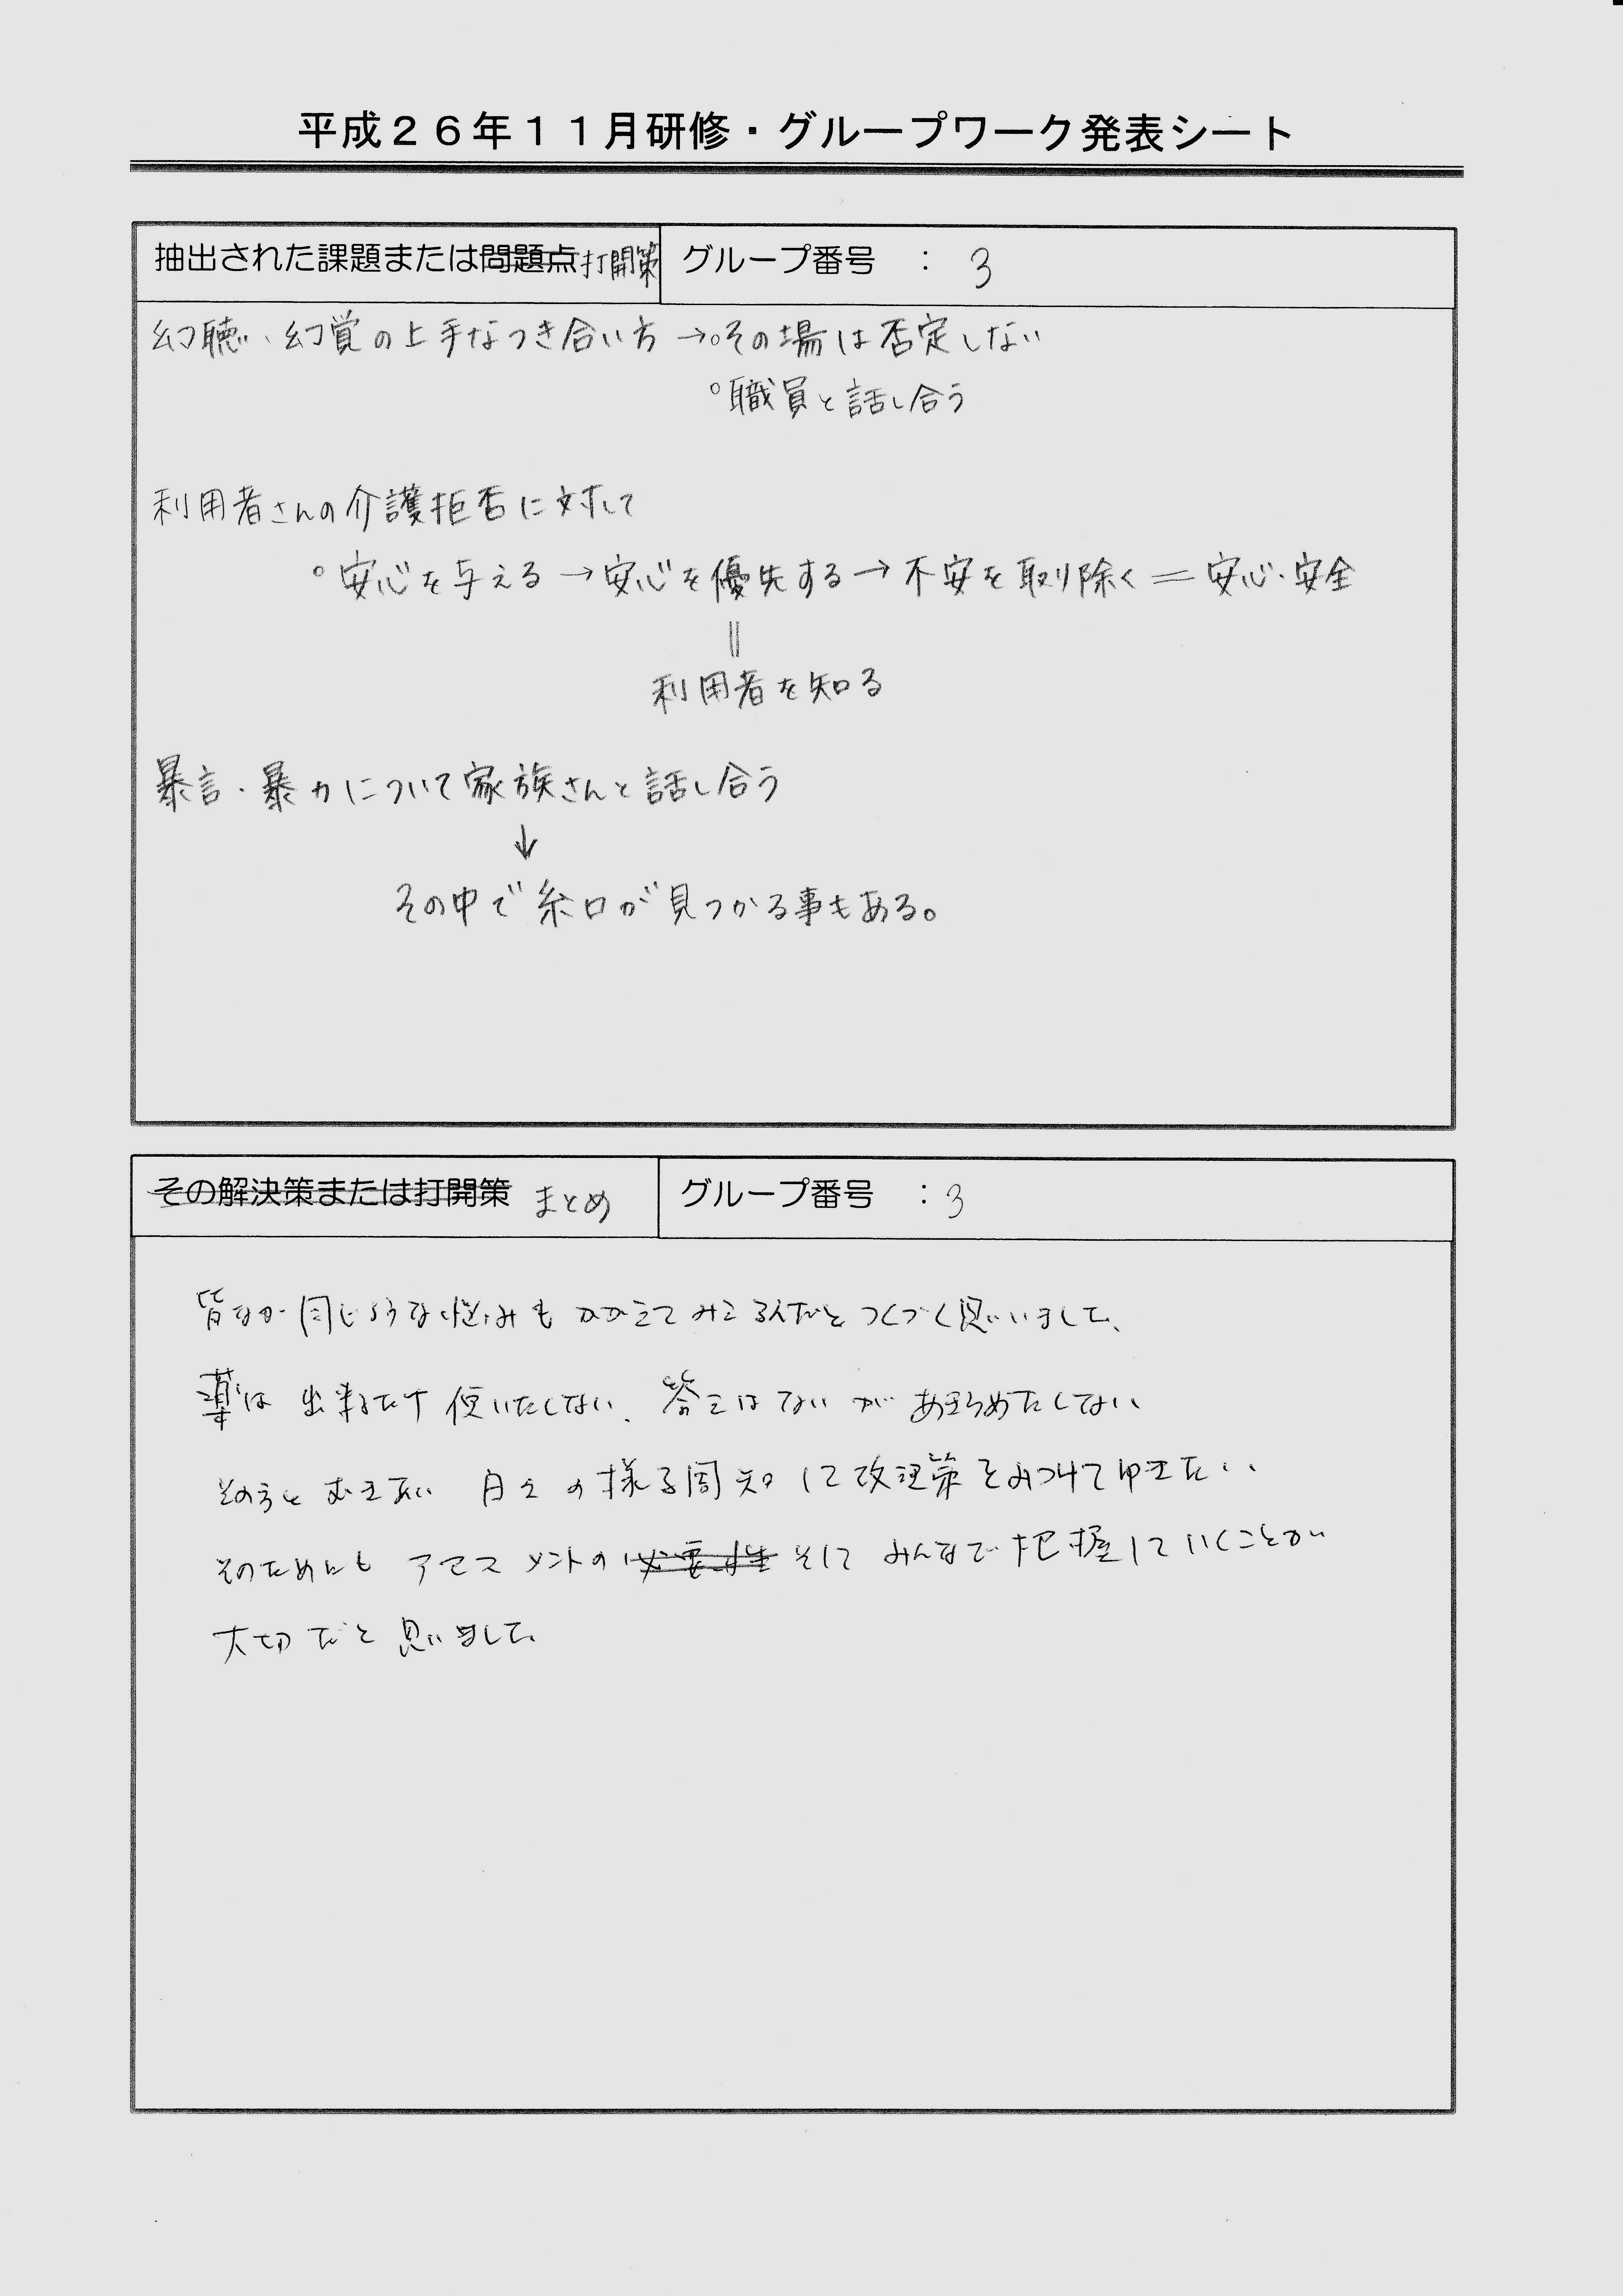 平成２６年１１月研修・グループワーク発表シート
抽出された課題または問題点打開策
グループ番号 ： 3
幻聴、幻覚の上手なつき合い方→。その場は否定しない
。職員と話し合う
利用者さんの介護拒否に対して
。安心を与える→安心を優先する→不安を取り除く＝安心・安全
||
利用者を知る
暴言・暴力について家族さんと話し合う
↓
その中で糸口が見つかる事もある。
その解決策または打開策 まとめ
グループ番号 ： 3
皆なが同じような悩みも かかえて つくづく思いました、
薬は出来るだけ使いたくない、答えはないが あきらめたくない
その方と むき合い 日々の様子 周知して 策をみつけてゆきたい、
そのためにも アセスメントの必要性 そして みんなで把握していくことが
大切だと思いました。